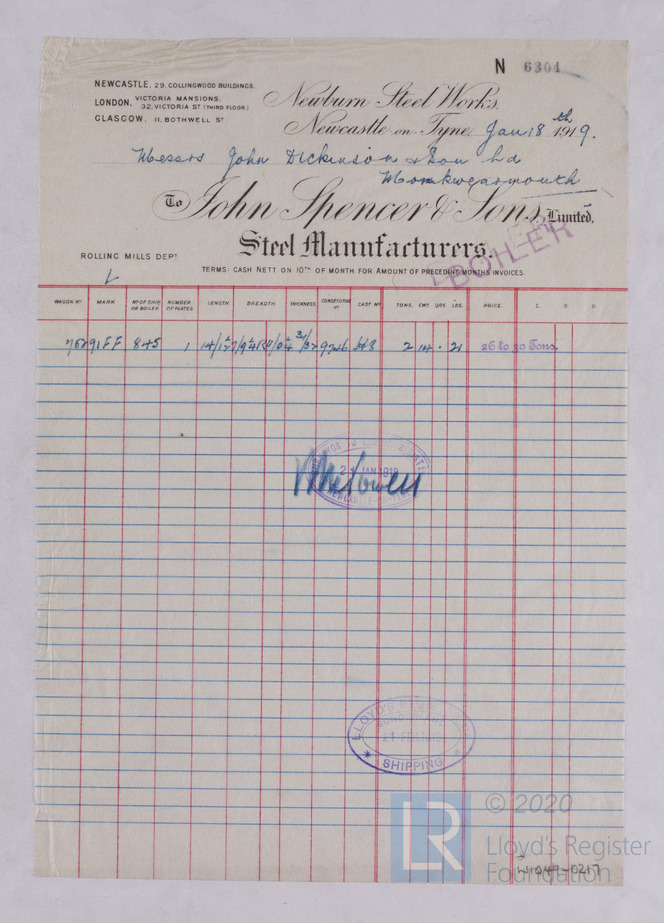 N 6304
NEWCASTLE, 29, COLLINGWOOD BUILDINGS.
LONDON, VICTORIA MANSIONS, 32, VICTORIA ST (THIRD FLOOR)
GLASGOW, 11, BOTHWELL ST
Newburn Steel Works,
Newcastle on Tyne, Jan 18th 1919.
Messrs John Dickinson & Son Ld
Monkwearmouth
To John Spencer & Sons, Limited,
Steel Manufacturers.
BOILER
ROLLING MILLS DEPT
TERMS: CASH NETT ON 10TH OF MONTH FOR AMOUNT OF PRECEDING MONTHS INVOICES.
WAGON No MARK No OF SHIP OR BOILER NUMBER OF PLATES LENGTH. BREADTH. THICKNESS. CONSECUTIVE No CAST No TONS. CWT. QRS. LBS. PRICE. £. S. D.
845 1 2 14 . 21 26 to 30 Tons.
21 JAN 1919
LLOYD'S
SHIPPING
LR
© 2020
Lloyd's Register
Foundation
W1049-0217